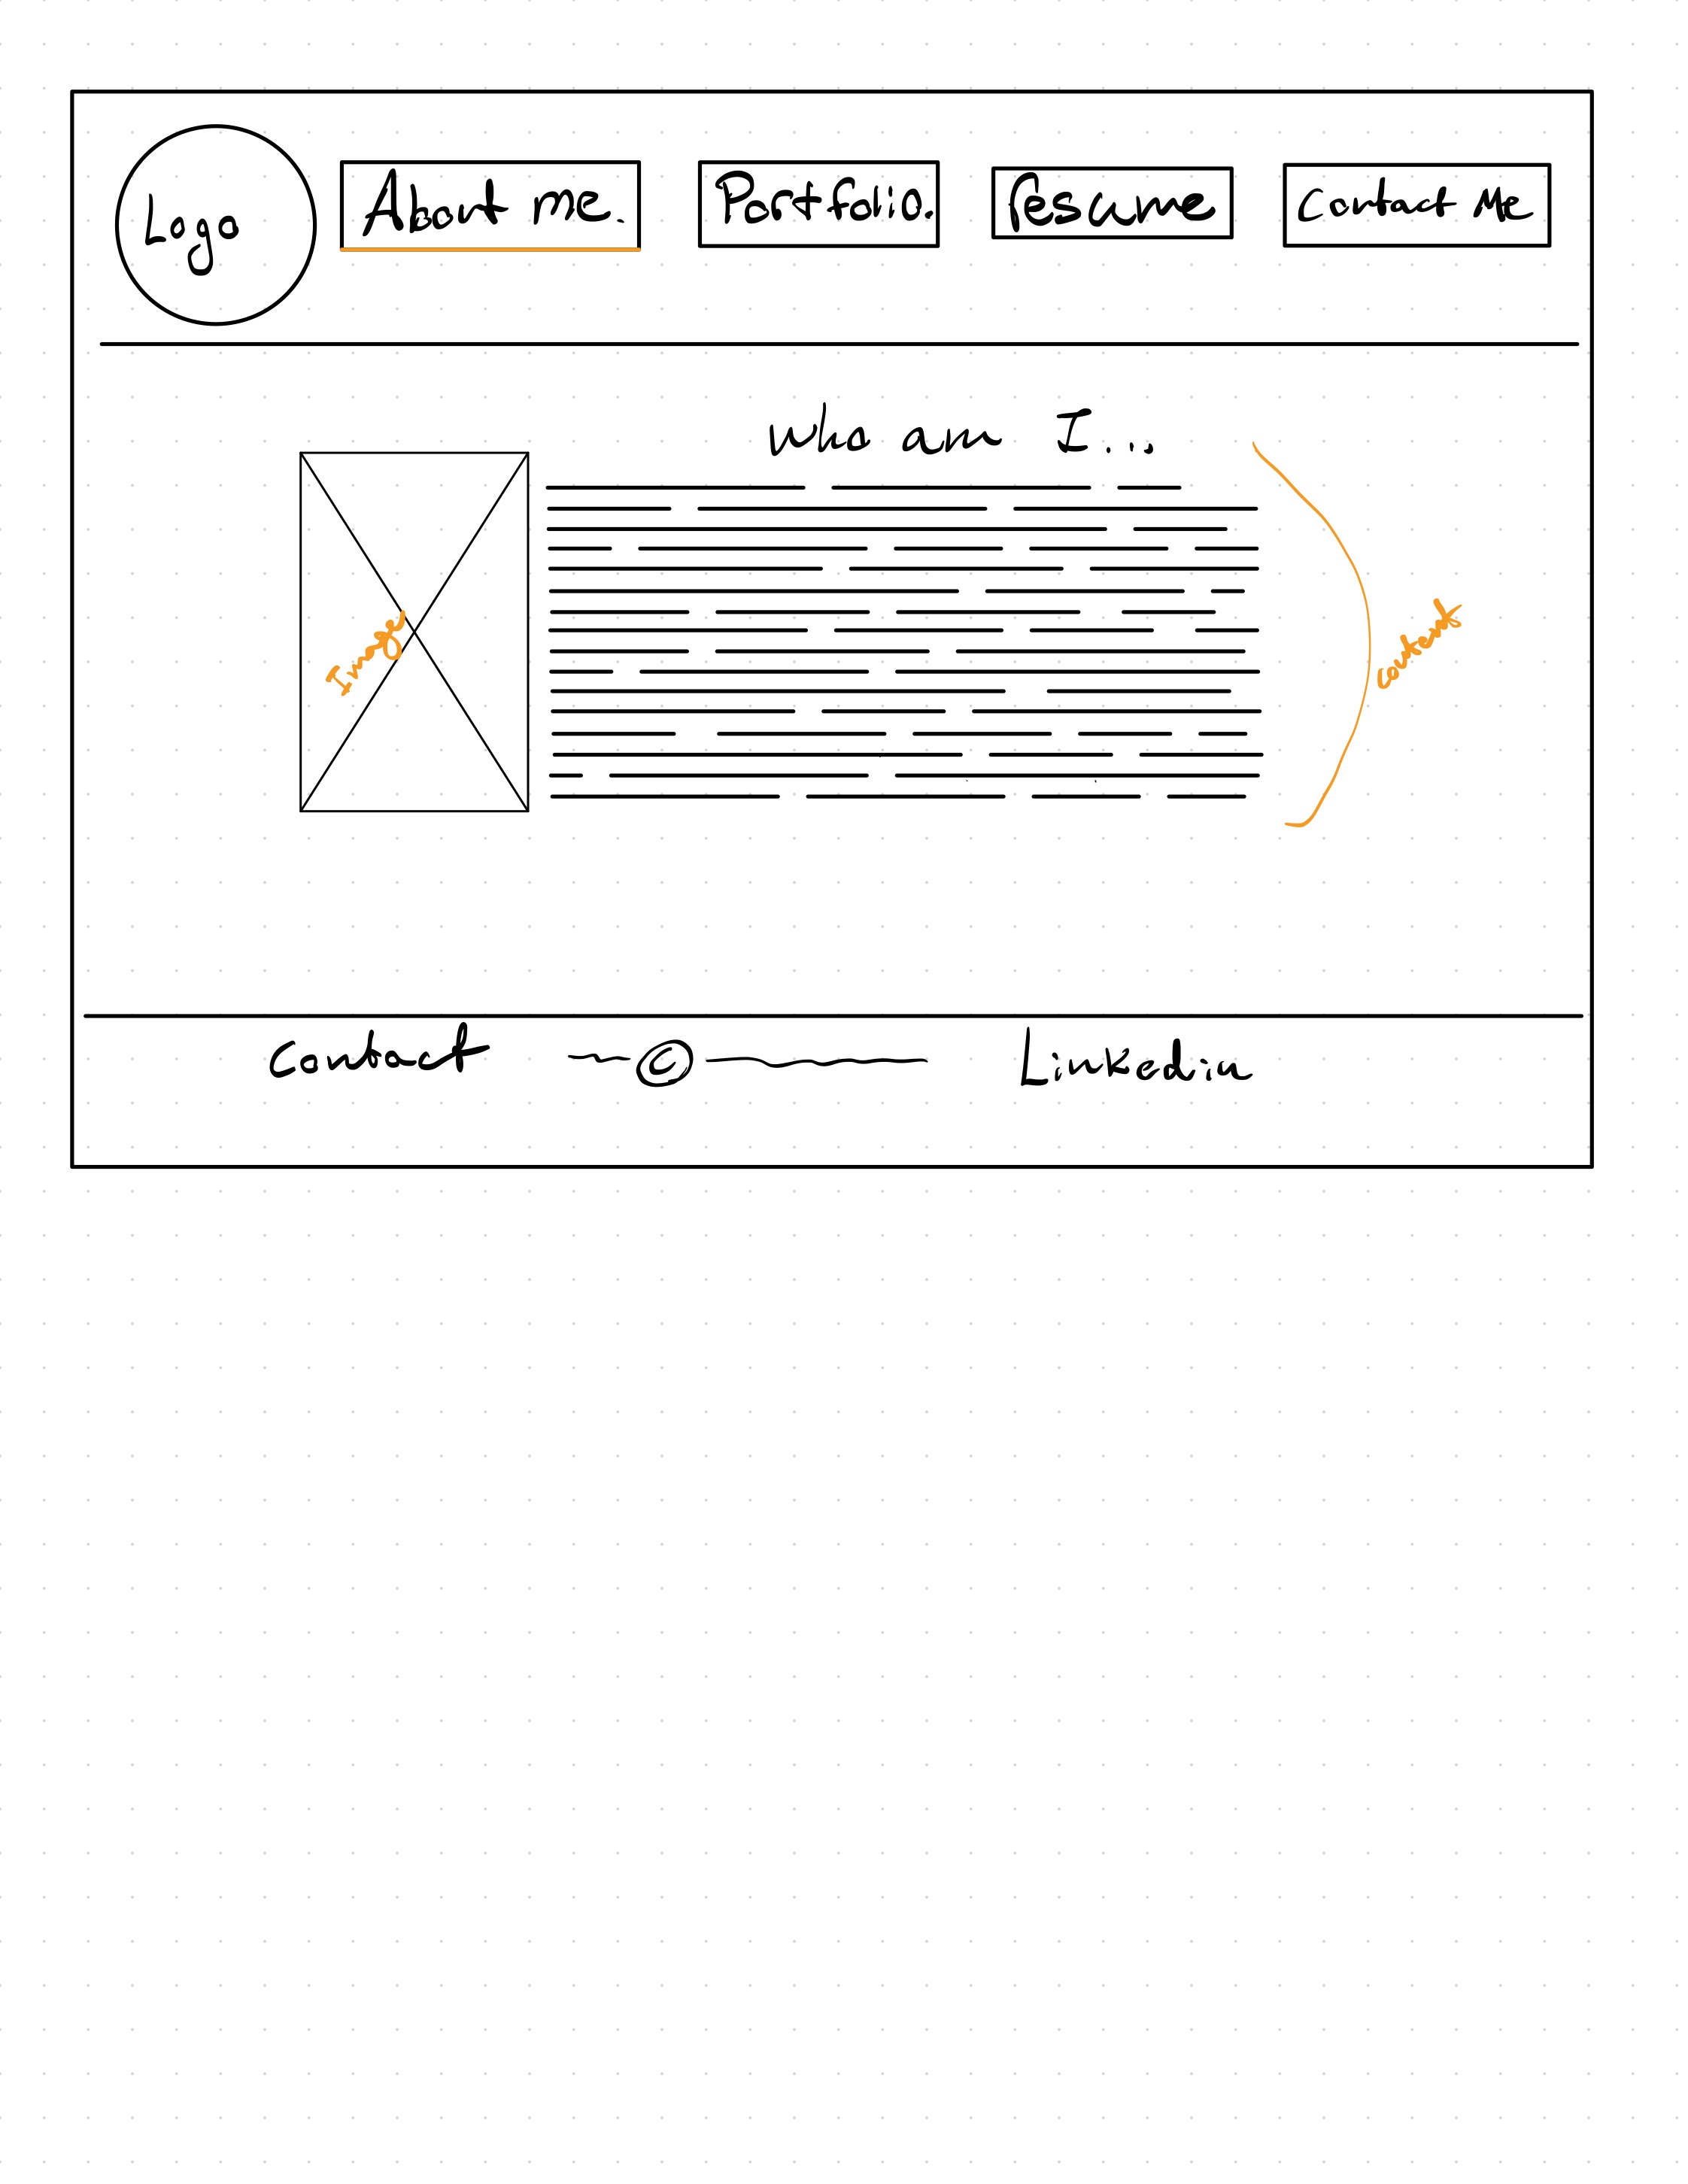 Logo
About me.
Portfolio.
Resume
Contact Me
Who am I...
Image
content
Contact
©
Linkedin